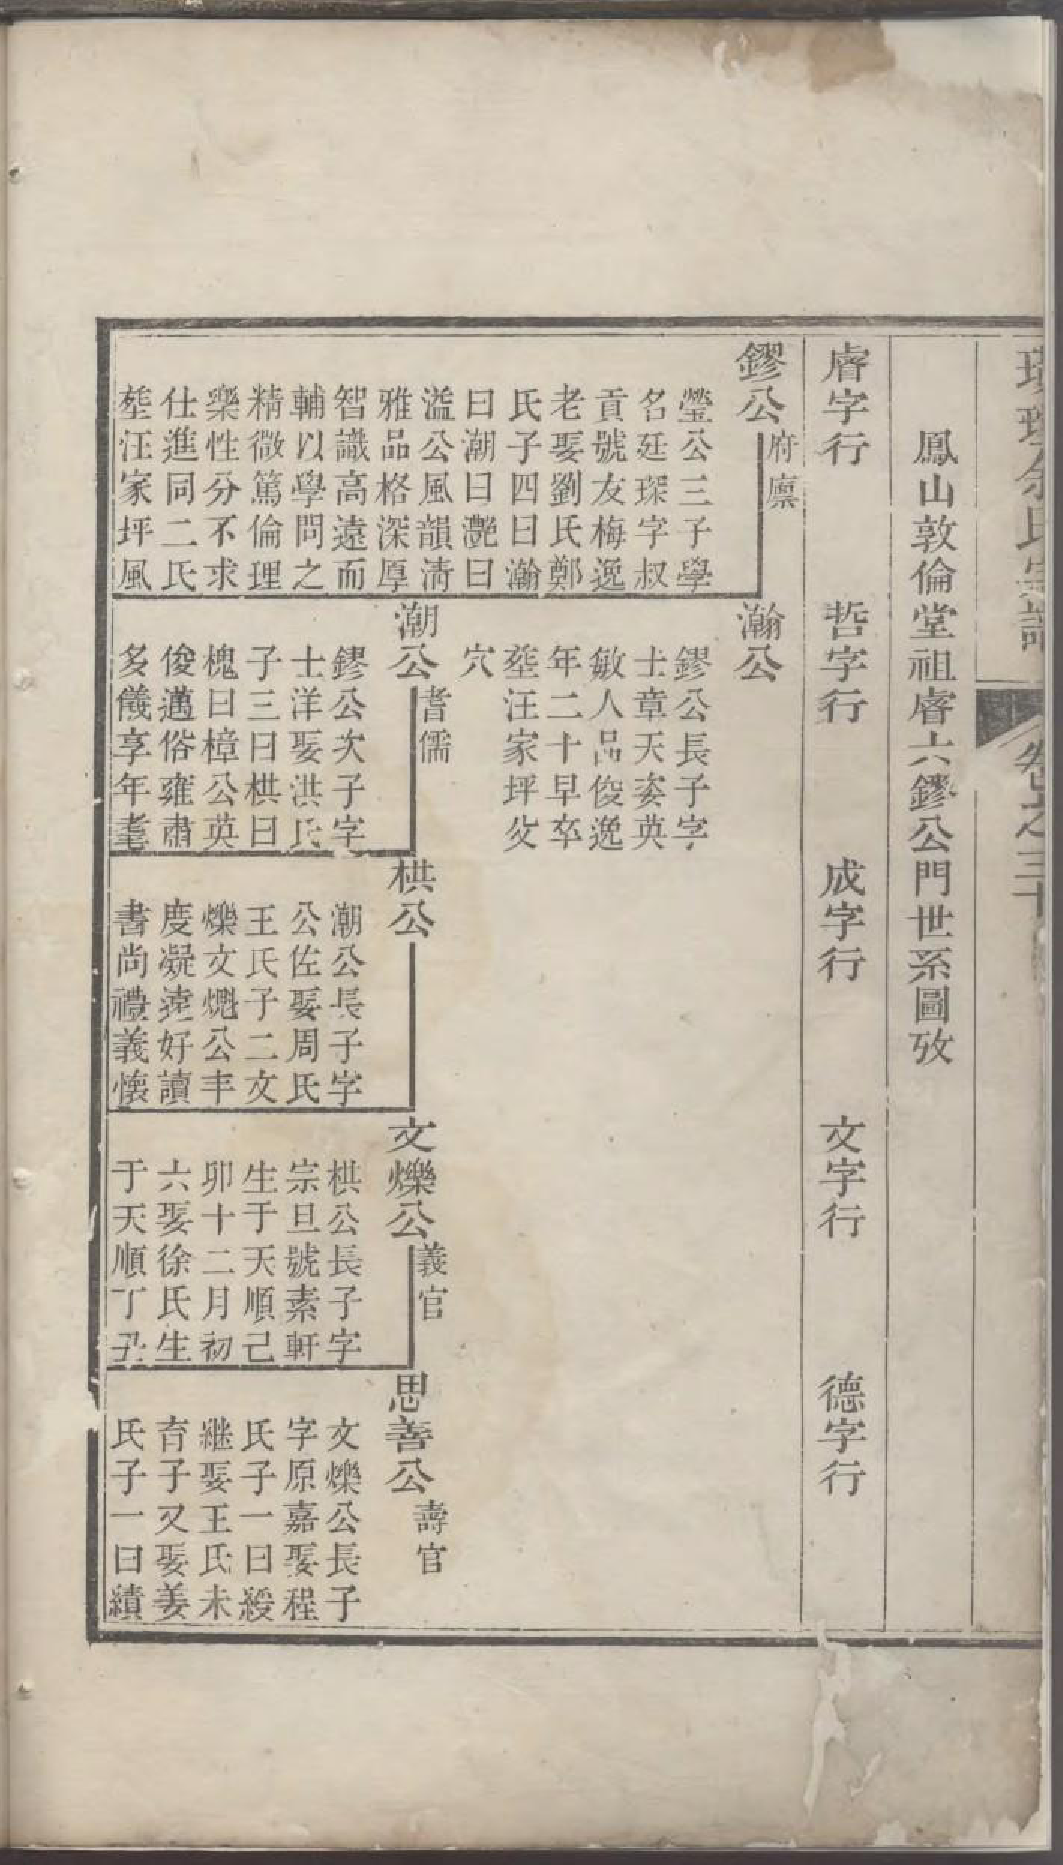 余氏宗譜
鳳山敦倫堂祖睿六鏐公門世系圖攷
睿字行
哲字行
成字行
文字行
德字行
鏐公
府廪
瑩公三子學
名廷琛字叔
貢號友梅逸
老娶劉氏鄭
氏子四曰瀚
曰潮曰灔曰
溢公風韻清
雅品格深厚
智識高遠而
輔以學問之
精微篤倫理
樂性分不求
仕進同二氏
塟汪家坪風
瀚公
鏐公長子字
士章天姿英
敏人品俊逸
年二十早卒
塟汪家坪父
穴
潮公
耆儒
鏐公次子字
士洋娶洪氏
子三曰栱曰
槐曰樟公英
俊邁俗雍肅
多儀享年耄
栱公
潮公長子字
公佐娶周氏
王氏子二文
爍文爊公丰
度凝遠好讀
書尚禮義懷
文爍公
義官
栱公長子字
宗旦號素軒
生于天順己
卯十二月初
六娶徐氏生
于天順丁丑
思善公
壽官
文爍公長子
字原嘉娶程
氏子一曰綬
継娶王氏未
育子又娶姜
氏子一曰績